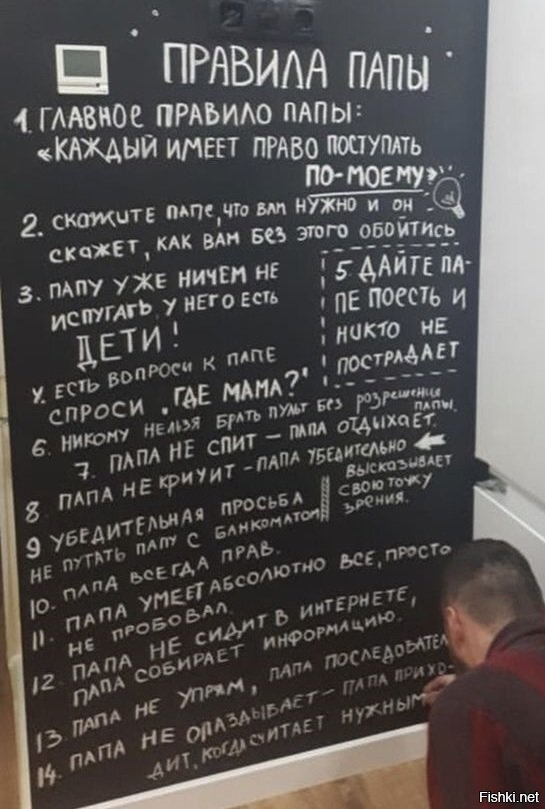 ПРАВИЛА ПАПЫ
1. ГЛАВНОЕ ПРАВИЛО ПАПЫ:
«КАЖДЫЙ ИМЕЕТ ПРАВО ПОСТУПАТЬ
ПО-МОЕМУ»
2. СКАЖИТЕ ПАПЕ, ЧТО ВАМ НУЖНО И ОН
СКАЖЕТ, КАК ВАМ БЕЗ ЭТОГО ОБОЙТИСЬ
3. ПАПУ УЖЕ НИЧЕМ НЕ
ИСПУГАТЬ У НЕГО ЕСТЬ
ДЕТИ!
4. ЕСТЬ ВОПРОСЫ К ПАПЕ
СПРОСИ „ГДЕ МАМА?"
5 ДАЙТЕ ПА-
ПЕ ПОЕСТЬ И
НИКТО НЕ
ПОСТРАДАЕТ
6. НИКОМУ НЕЛЬЗЯ БРАТЬ ПУЛЬТ БЕЗ РАЗРЕШЕНИЯ
ПАПЫ.
7. ПАПА НЕ СПИТ – ПАПА ОТДЫХАЕТ.
8. ПАПА НЕ КРИЧИТ – ПАПА УБЕДИТЕЛЬНО
ВЫСКАЗЫВАЕТ
СВОЮ ТОЧКУ
ЗРЕНИЯ.
9 УБЕДИТЕЛЬНАЯ ПРОСЬБА
НЕ ПУТАТЬ ПАПУ С БАНКОМАТОМ
10. ПАПА ВСЕГДА ПРАВ.
11. ПАПА УМЕЕТ АБСОЛЮТНО ВСЕ, ПРОСТО
НЕ ПРОБОВАЛ.
12 ПАПА НЕ СИДИТ В ИНТЕРНЕТЕ,
ПАПА СОБИРАЕТ ИНФОРМАЦИЮ.
13. ПАПА НЕ УПРЯМ, ПАПА ПОСЛЕДОВАТЕЛ
14. ПАПА НЕ ОПАЗДЫВАЕТ – ПАПА ПРИХО-
ДИТ, КОГДА СЧИТАЕТ НУЖНЫМ
Fishki.net